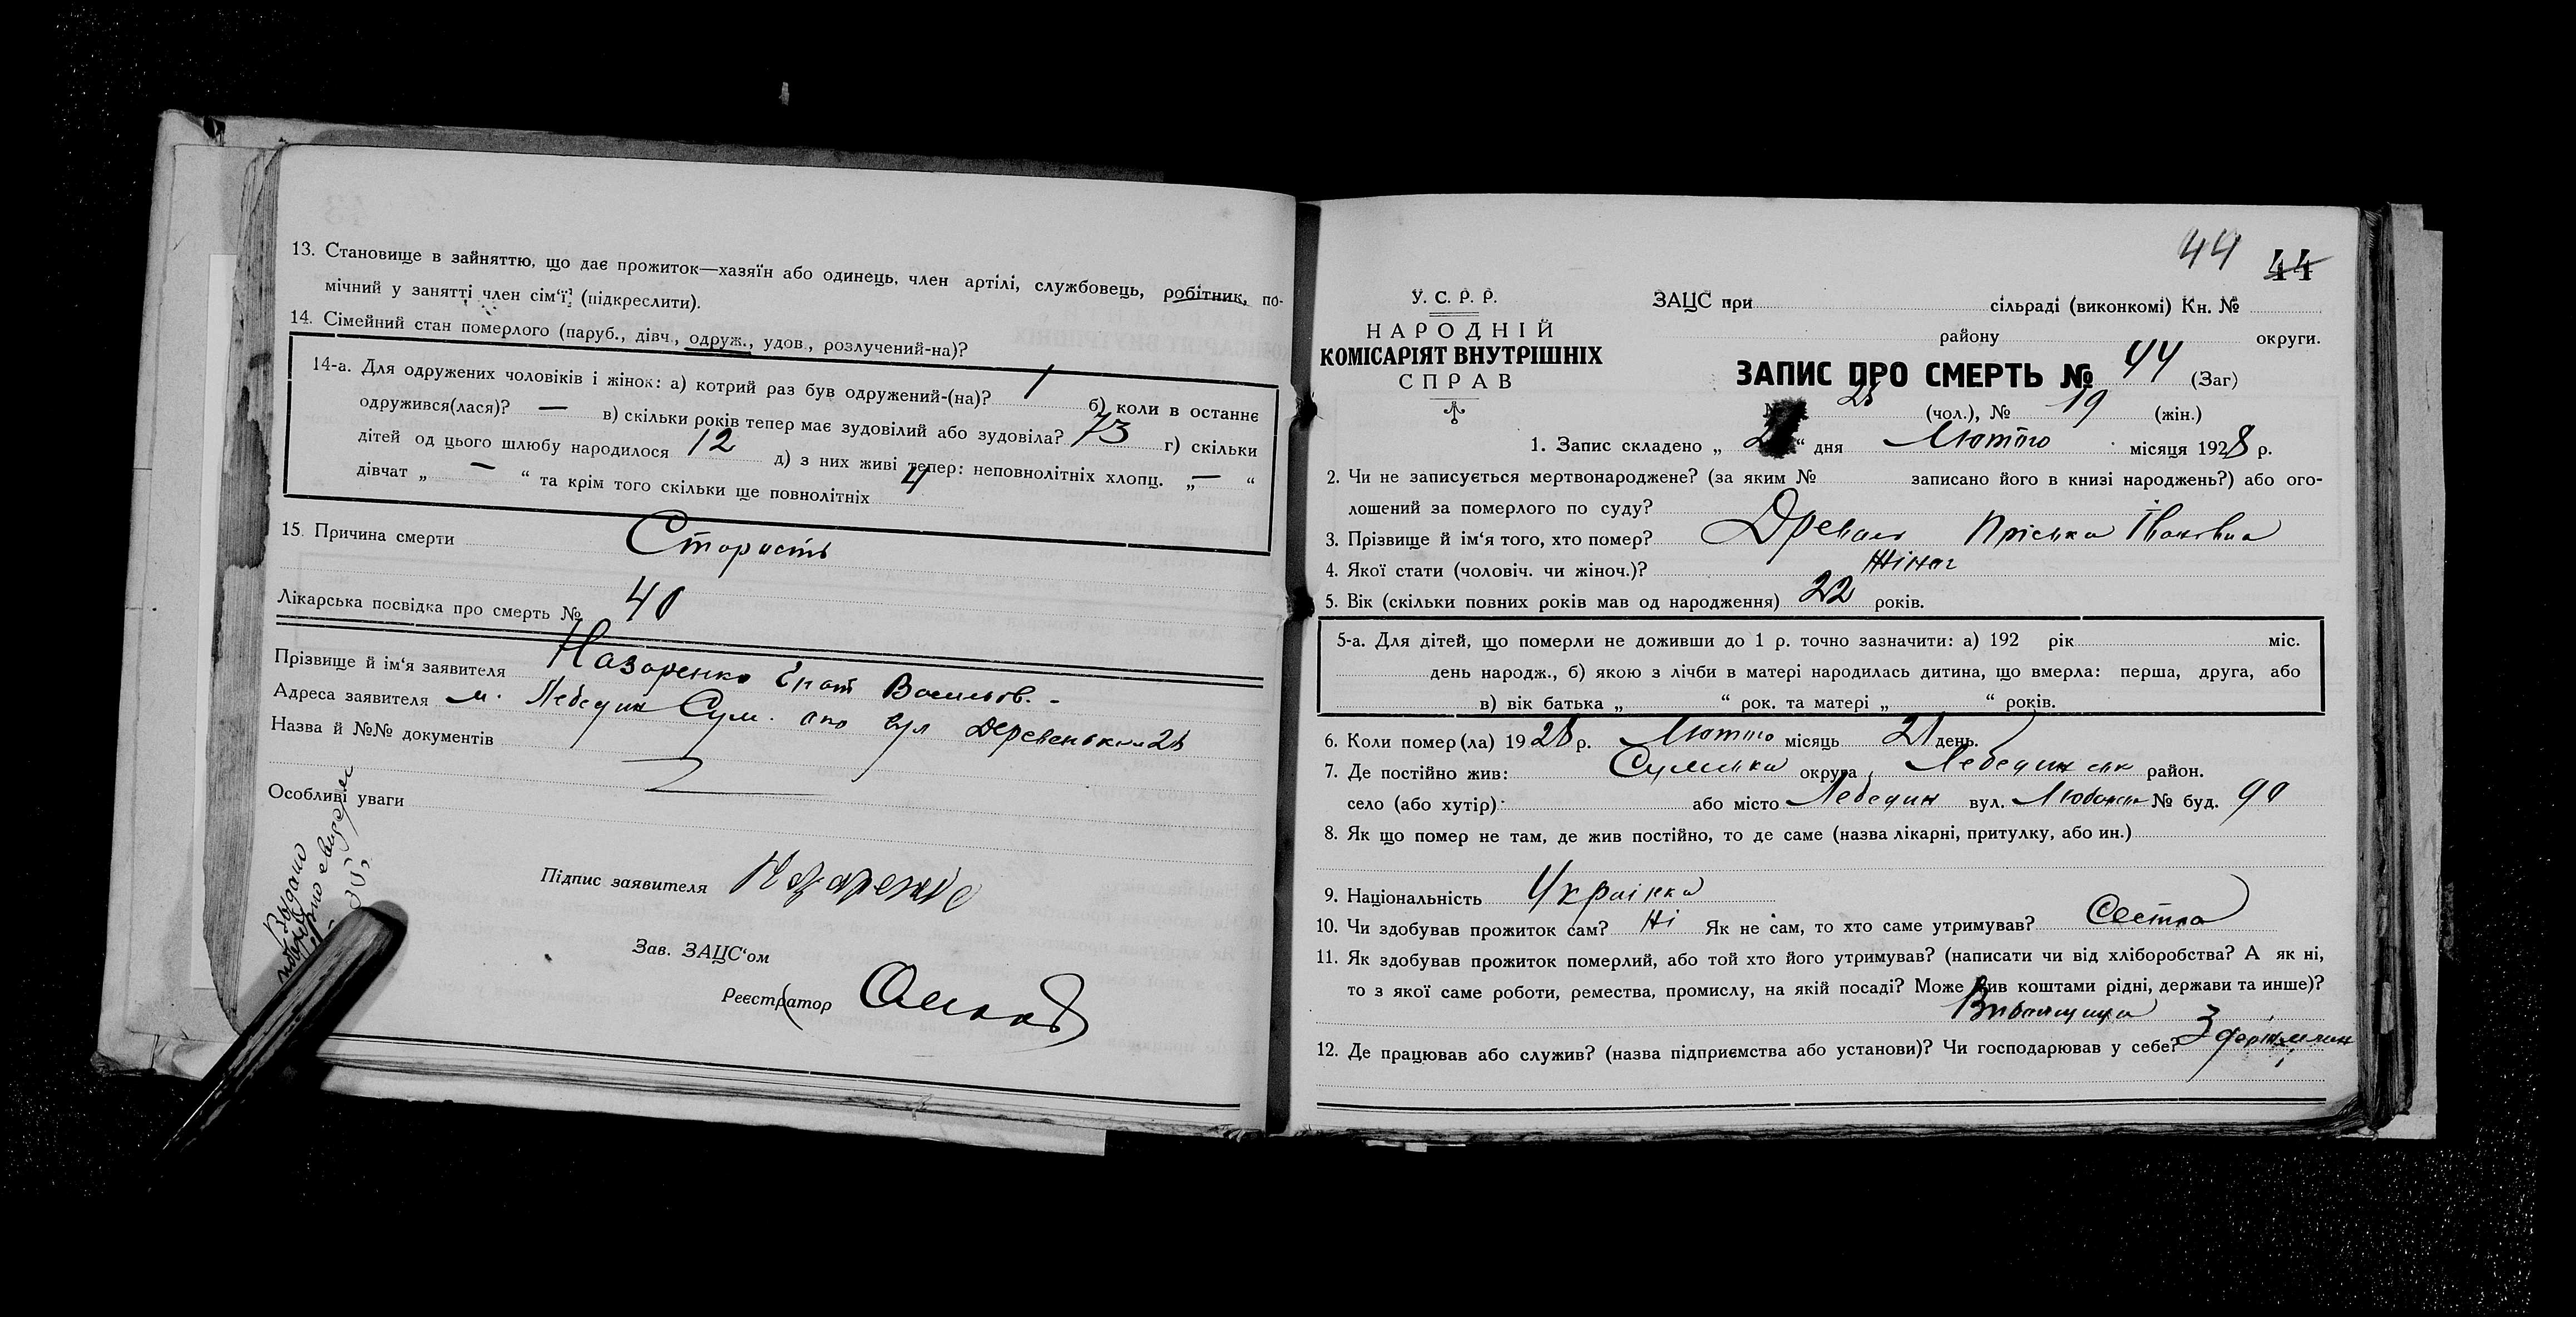 13. Становище в зайняттю, що дає прожиток—хазяїн або одинець, член артілі, службовець, робітник, по-
мічний у занятті член сім‘ї? (підкреслити).
14. Сімейний стан померлого (паруб., дівч., одруж., удов., розлучений-на)?
14-а. Для одружених чоловіків і жінок: а) котрий раз був одружений-(на)? 1 б) коли в останнє
одружився(лася)? — в) скільки років тепер має зудовілий або зудовіла? 73 г) скільки
дітей од цього шлюбу народилося 12 д) з них живі тепер: неповнолітніх хлопц. „ — “
дівчат „ — “ та крім того скільки ще повнолітніх 4
15. Причина смерти Старість
Лікарська посвідка про смерть № 40
Прізвище й ім‘я заявителя Назаренко Гнат Васильов.
Адреса заявителя м. Лебедин Сум. окр вул Деревенькая 28
Назва й №№ документів
Особливі уваги
Выдано
повторно
Підпис заявителя Назаренко
Зав. ЗАЦС‘ом
Реєстратор
44 44
У. С. Р. Р.
НАРОДНІЙ
КОМІСАРІЯТ ВНУТРІШНІХ
СПРАВ
ЗАЦС при сільраді (виконкомі) Кн. №
району округи.
ЗАПИС ПРО СМЕРТЬ № 44 (Заг)
25 (чол.), № 19 (жін.)
1. Запис складено „ “ дня Лютого місяця 1928 р.
2. Чи не записується мертвонароджене? (за яким № записано його в книзі народжень?) або ого-
лошений за померлого по суду?
3. Прізвище й ім‘я того, хто помер? Древаль Пріська Івановна
4. Якої стати (чоловіч. чи жіноч.)? Жіноч
5. Вік (скільки повних років мав од народження) 22 років.
5-а. Для дітей, що померли не доживши до 1 р. точно зазначити: а) 192 рік міс.
день народж., б) якою з лічби в матері народилась дитина, що вмерла: перша, друга, або
в) вік батька „ “ рок. та матері „ “ років.
6. Коли помер(ла) 1928 р. Лютого місяць 21 день.
7. Де постійно жив: Сумська округа, Лебединськ район.
село (або хутір): або місто Лебедин вул. № буд. 90
8. Як що помер не там, де жив постійно, то де саме (назва лікарні, притулку, або ин.)
9. Національність Українка
10. Чи здобував прожиток сам? Ні Як не сам, то хто саме утримував? Сестра
11. Як здобував прожиток померлий, або той хто його утримував? (написати чи від хліборобства? А як ні,
то з якої саме роботи, ремества, промислу, на якій посаді? Може жив коштами рідні, держави та инше)?
12. Де працював або служив? (назва підприємства або установи)? Чи господарював у себе?